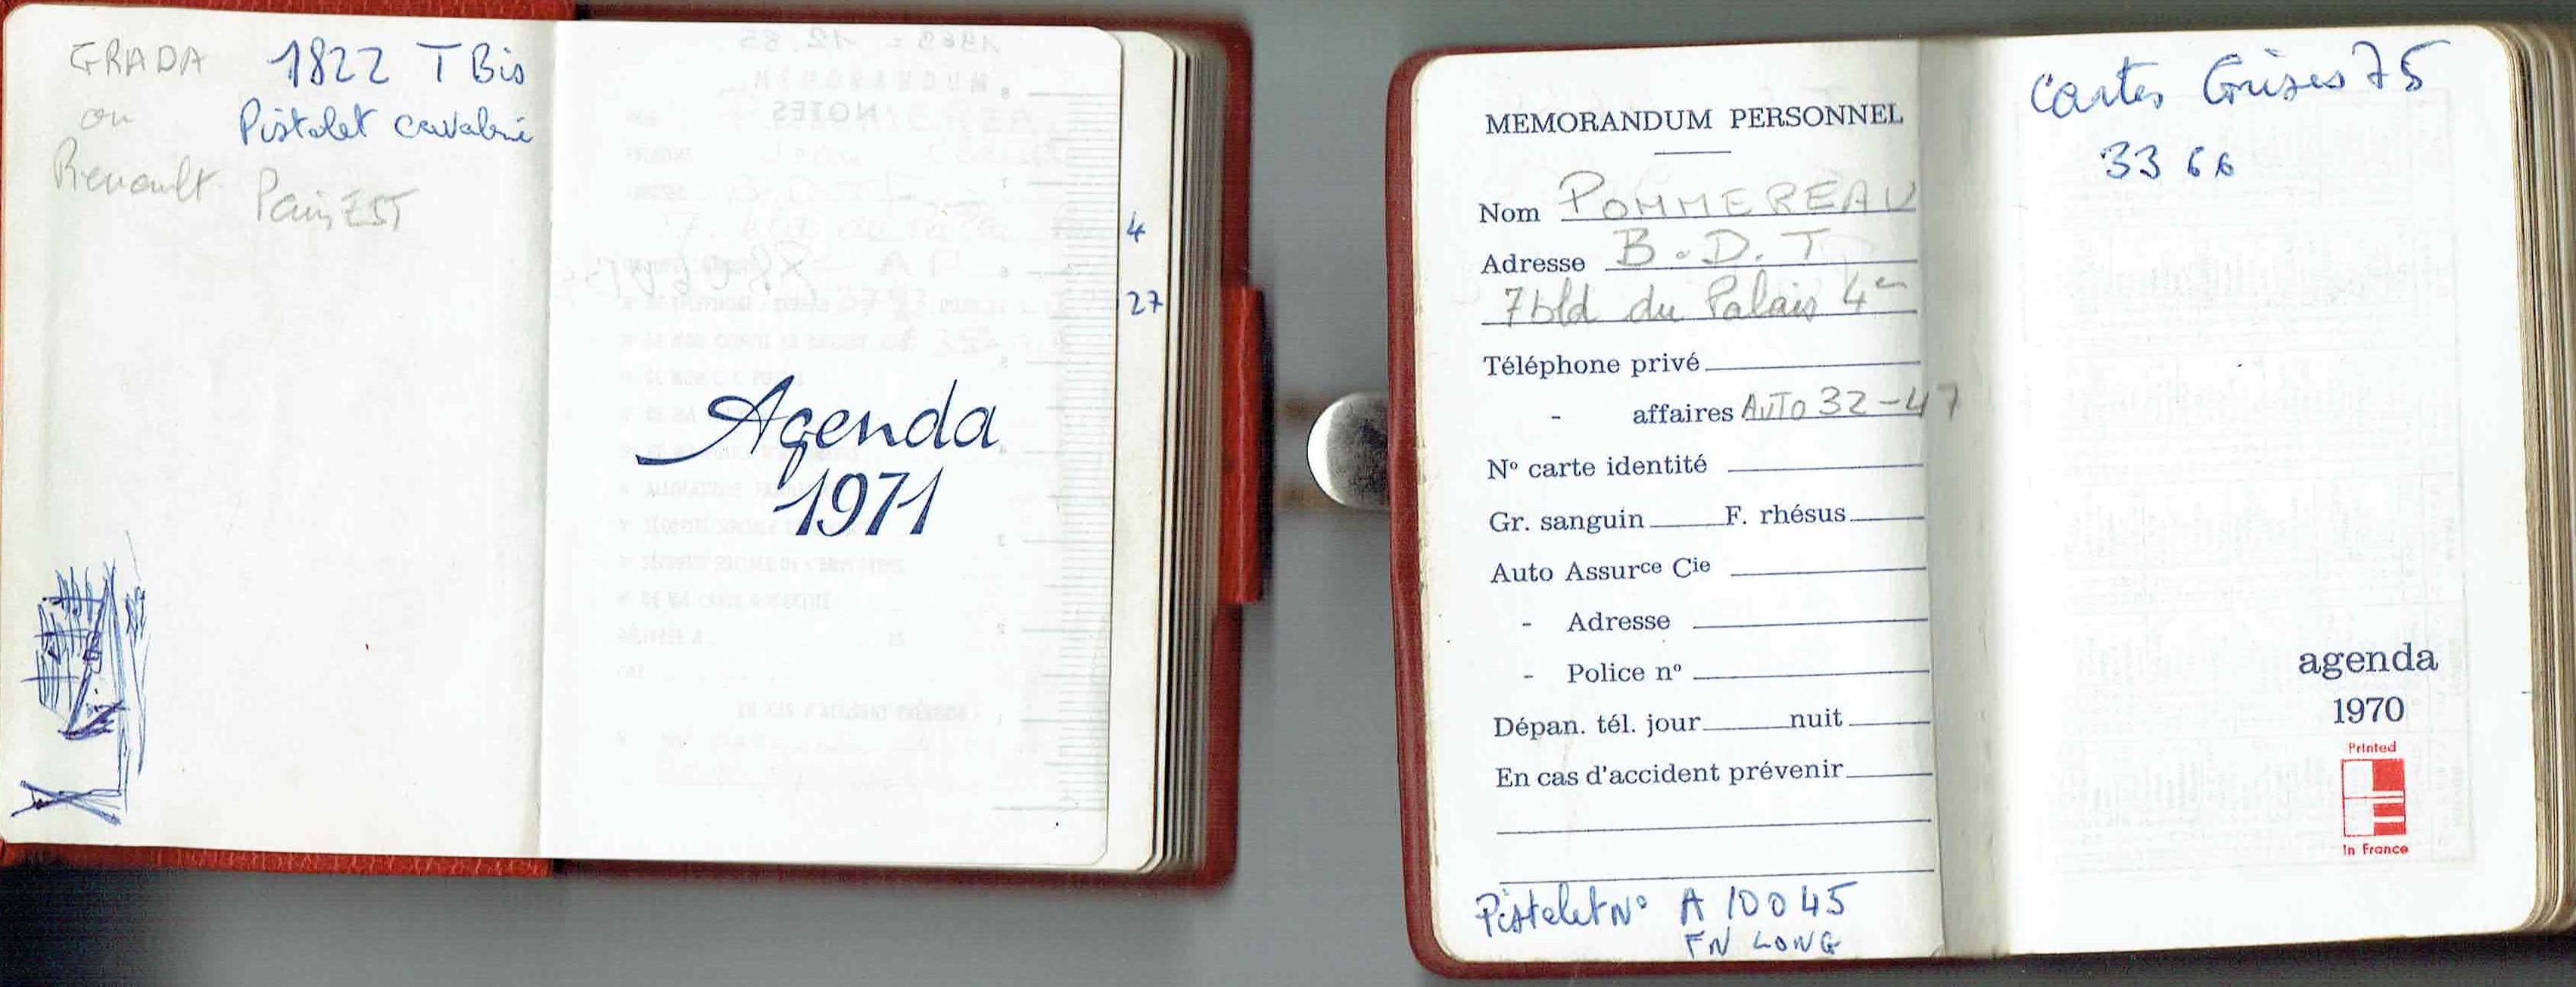 GRADA
ou
Renault
1822 T Bis
Pistolet cavalerie
Paris EST
NOTES
4
27
Agenda
1971
MEMORANDUM PERSONNEL
Nom POMMEREAU
Adresse B.D.T
7 bld du Palais 4e
Téléphone privé
- affaires AUTO 32-47
Nº carte identité
Gr. sanguin F. rhésus
Auto Assurce Cie
- Adresse
- Police nº
Dépan. tél. jour nuit
En cas d'accident prévenir
Pistolet Nº A 10045
FN LONG
Cartes Grises 75
33 66
agenda
1970
Printed
In France